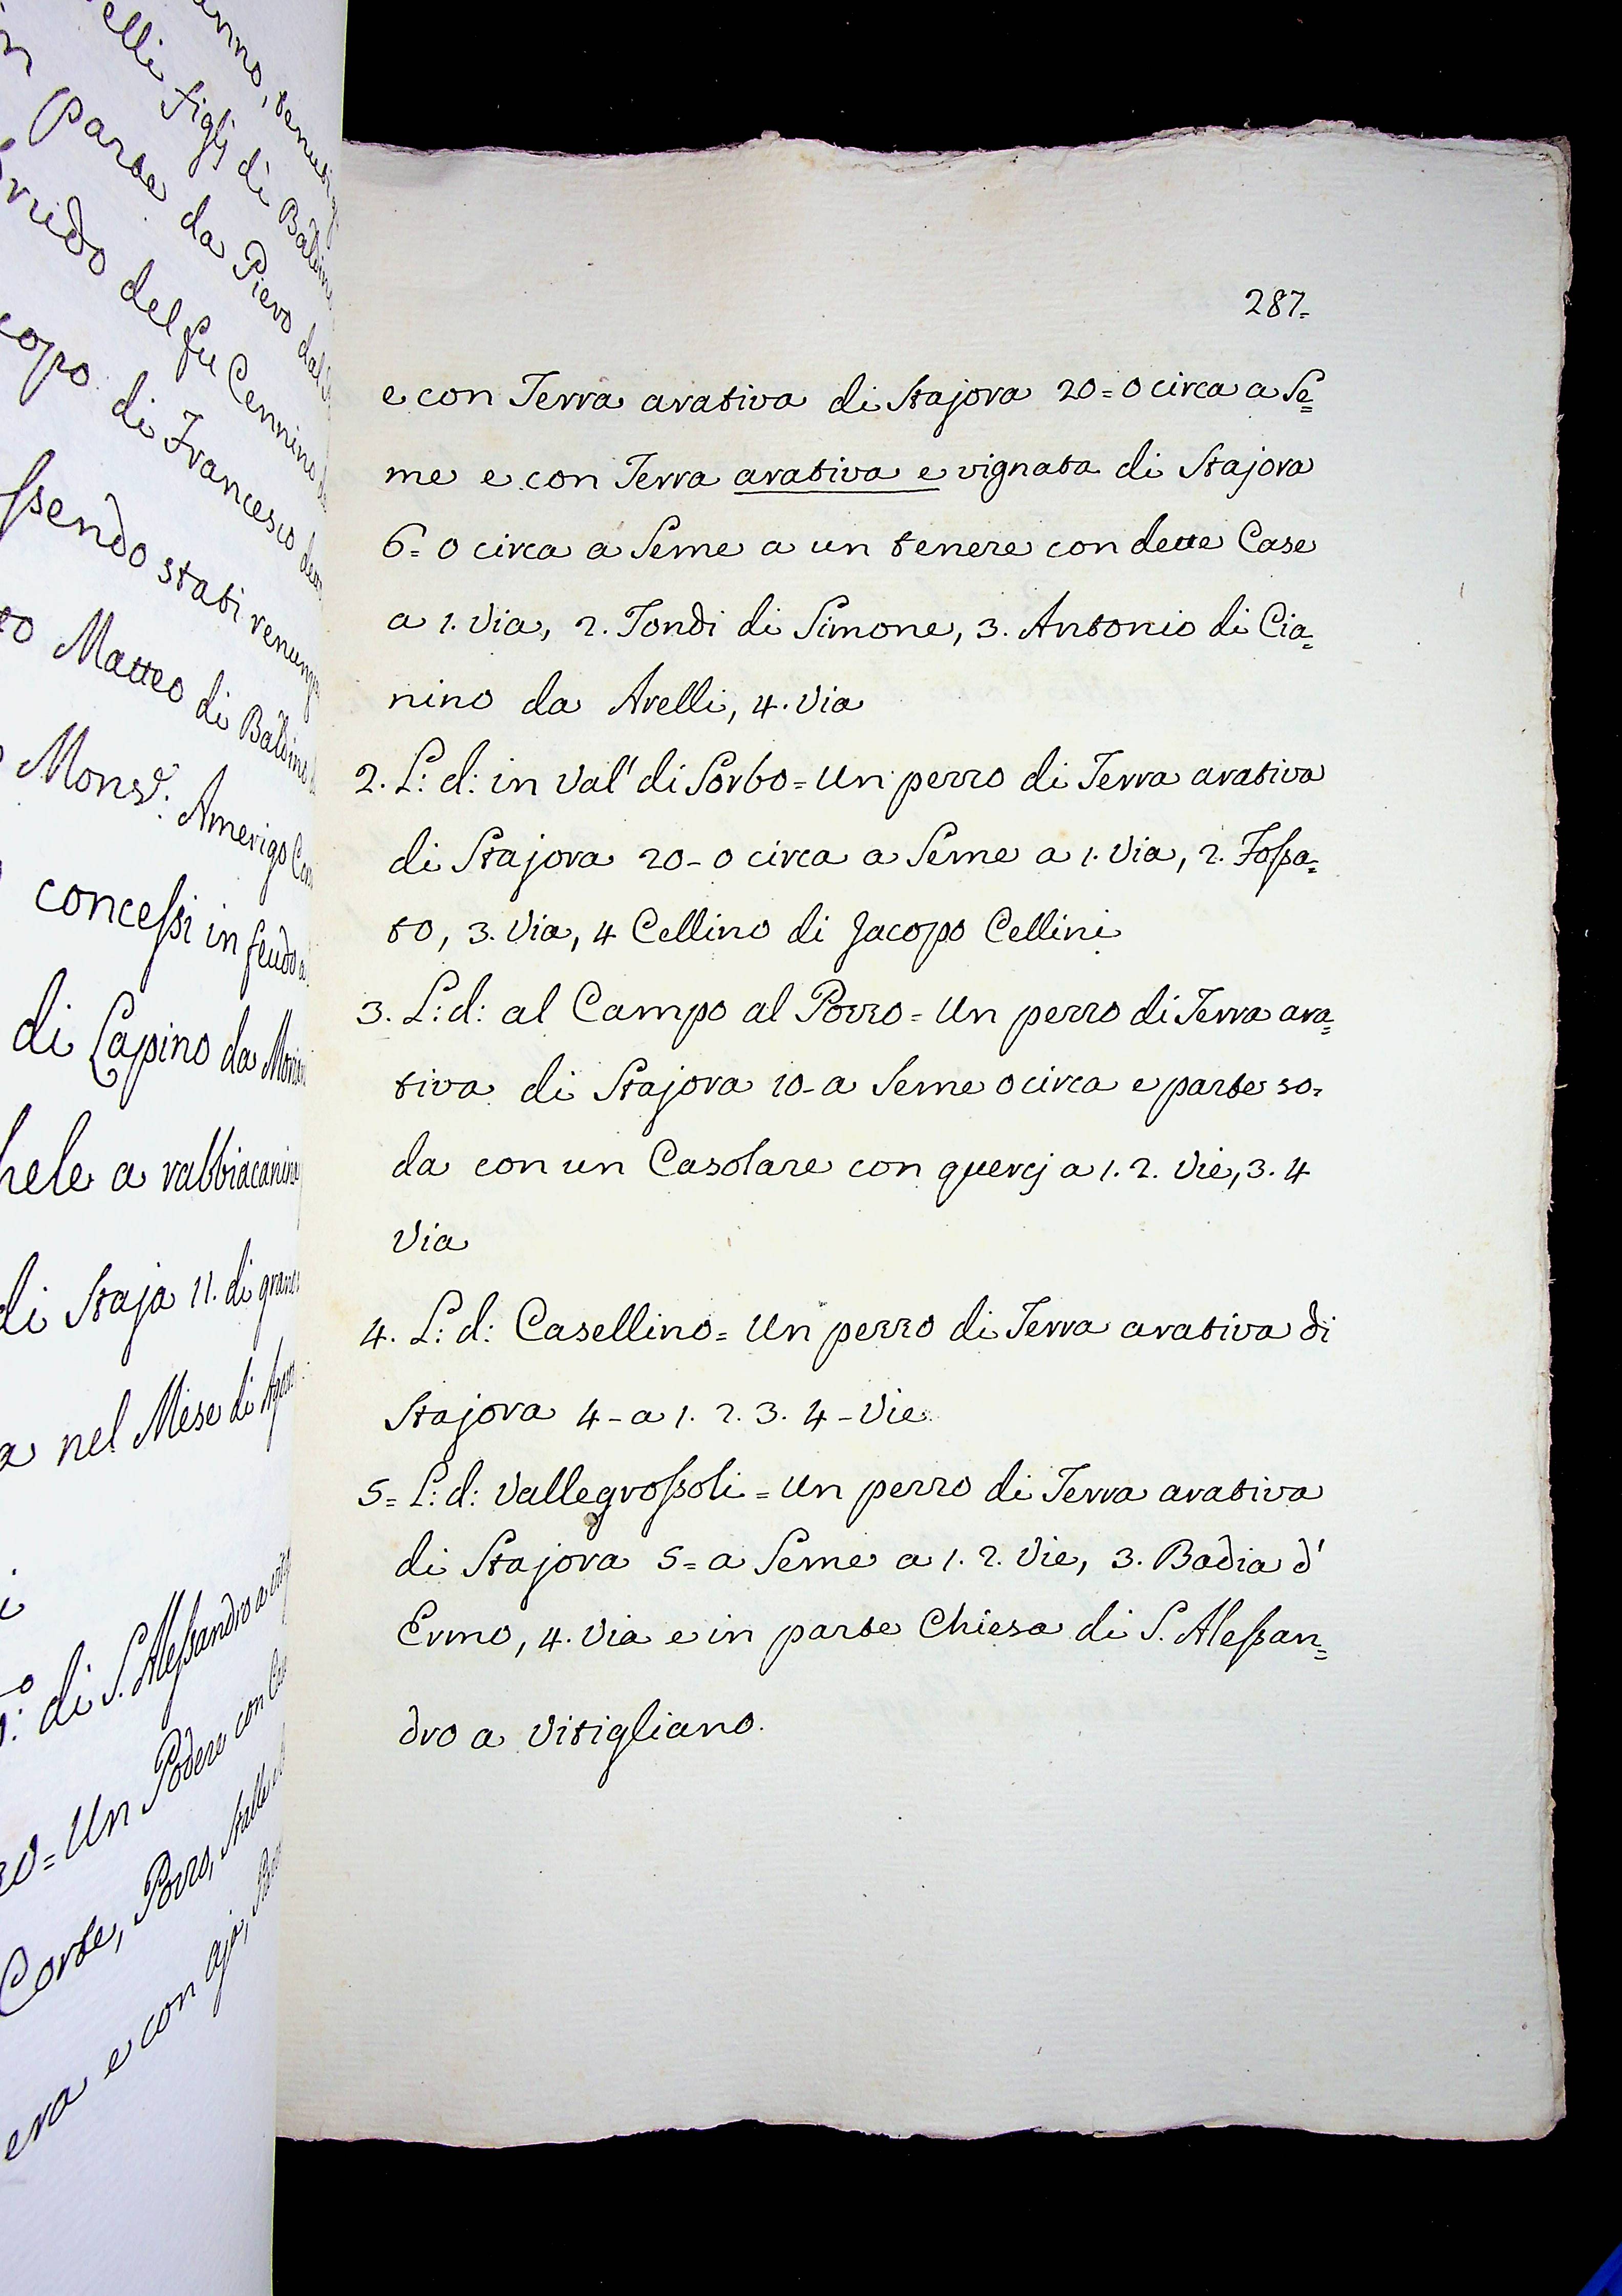 anno,
elli figlj di Baldino
in parte da Piero dal
vido del fu Cennino
copo di Francesco
ſsendo stati
to Matteo di Baldino
Monsʳ: Amerigo
conceſsi in feudo a
di Lapino da
hele a
di Staja 11. di grano
a nel Mese di
i
di S. Aleſsandro a
zo = Un Podere con
Corte, Pozzo, Stalle
era e con Aja,
287=
e con Terra arativa di Stajora 20=0 circa a Se=
me e con Terra arativa e vignata di Stajora
6=0 circa a Seme a un tenere con dette Case
a 1. Via, 2. Fondi di Simone, 3. Antonio di Cia=
nino da Arelli, 4. Via
2. L: d: in Val' di Sorbo = Un pezzo di Terra arativa
di Stajora 20-0 circa a Seme a 1. Via, 2. Foſsa=
to, 3. Via, 4 Cellino di Jacopo Cellini
3. L: d: al Campo al Pozzo = Un pezzo di Terra ara=
tiva di Stajora 10-a Seme o circa e parte so=
da con un Casolare con quercj a 1. 2. Vie, 3. 4
Via
4. L: d: Casellino = Un pezzo di Terra arativa di
Stajora 4-a 1. 2. 3. 4-Vie
5= L: d: Vallegroſsoli = Un pezzo di Terra arativa
di Stajora 5=a Seme a 1. 2. Vie, 3. Badia d'
Ermo, 4. Via e in parte Chiesa di S. Aleſsan=
dro a Vitigliano.